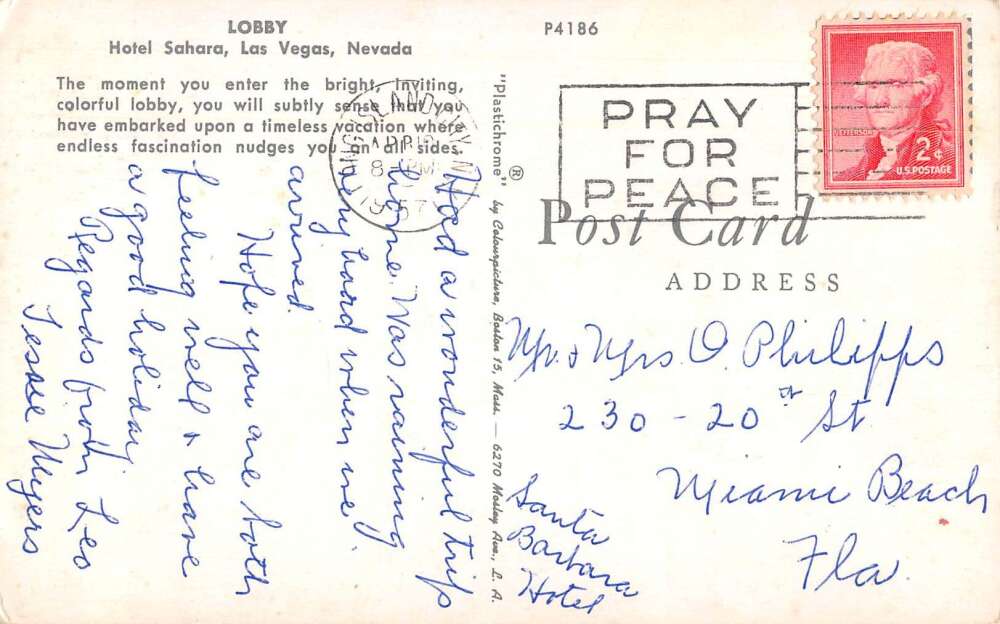 LOBBY
Hotel Sahara, Las Vegas, Nevada
The moment you enter the bright, inviting,
colorful lobby, you will subtly sense that you
have embarked upon a timeless vacation where
endless fascination nudges you on all sides.
P4186
LONG ISLAND CITY, N.Y.
APR
8 PM
1957
PRAY
FOR
PEACE
JEFFERSON
2¢
U.S. POSTAGE
Post Card
ADDRESS
"Plastichrome"® by Colourpicture, Boston 15, Mass. — 6270 Mosley Ave., L. A.
Had a wonderful trip
home. Was raining
very hard when we
arrived.
Hope you are both
feeling well & have
a good holiday
Regards from Leo
Jessie Myers
Mr. & Mrs O. Philipps
230-20th St
Miami Beach
Fla.
Santa
Barbara
Hotel